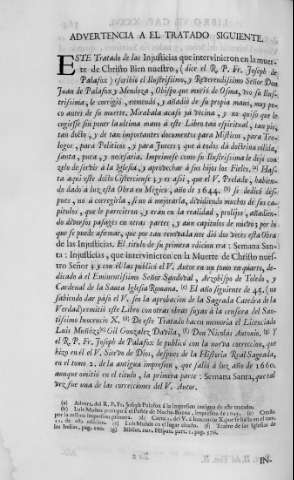 ADVERTENCIA A EL TRATADO SIGUIENTE.
ESTE Tratado de las Injusticias que intervinieron en la muer-
te de Christo Bien nuestro, (dice el R. P. Fr. Joseph de
Palafox) escribio el Ilustrissimo, y Reverendissimo Señor Don
Juan de Palafox y Mendoza, Obispo que murió de Osma,
trissima, le corrigió, enmendó, y añadió de su propia mano, muy po-
co antes de su muerte.
tan docto, y de tan importantes documentos para Misticos, para Teo-
logos, para Politicos, y para Jueces; que à todos dà doctrina solida,
santa, pura, y necesaria. Imprimose como su Ilustrissima le dejó con
zelo de servir à la Iglesia, y aprovechar à sus hijos los Fieles. (a) Has-
ta aqui este docto Cisterciense, y es asi, que el V. Prelado, habien-
do dado à luz esta Obra en Megico, año de 1644. (b) se dedicó des-
pues, no à corregirla, sino à mejorarla, dividiendo muchos de sus ca-
pitulos, que le parecieron, y eran en la realidad, prolijos, añadien-
do diversos pasages en otras partes, y aun capitulos de nuevo; por lo
que se puede afirmar, que por tan renovada nos diò dos veces esta Obra
de las Injusticias. El titulo de su primera edicion era: Semana San-
ta: Injusticias, que intervinieron en la Muerte de Christo nues-
tro Señor; y con él las publicó el V. Autor en un tomo en quarto, de-
dicado à el Eminentisimo Señor Sandoval, Arzobispo de Toledo, y
Cardenal de la Santa Iglesia Romana. (c) El año siguiente de 45. (
sabiendo dar pasó el V. Señ. la aprobacion de la Sagrada Catedra de la
Verdad) remitió este Libro con otras obras suyas à la censura del San-
tissimo Inocencio X. (d) De este Tratado hacen memoria el Licenciado
Luis Muñoz, (e) Gil Gonzalez Davila, (f) Don Nicolas Antonio, (g) Y
el R. P. Fr. Joseph de Palafox le publicó con la nueva correccion, que
hizo en él el V. Siervo de Dios, despues de la Historia Real Sagrada,
en el tomo 2. de la antigua impresion, que salió à luz año de 1660.
aunque omitió en el titulo, la primera parte: Semana Santa, que tal
vez fue una de las correcciones del V. Autor.
(a) Advert. del R. P. Fr. Joseph Palafox à la impresion antigua de este tratado.
(b) Luis Muñoz
por la misma impresion primera.
las Indias, pag. 100. (g) Biblioth. Hispan. part. 1. pag. 576.
IN.